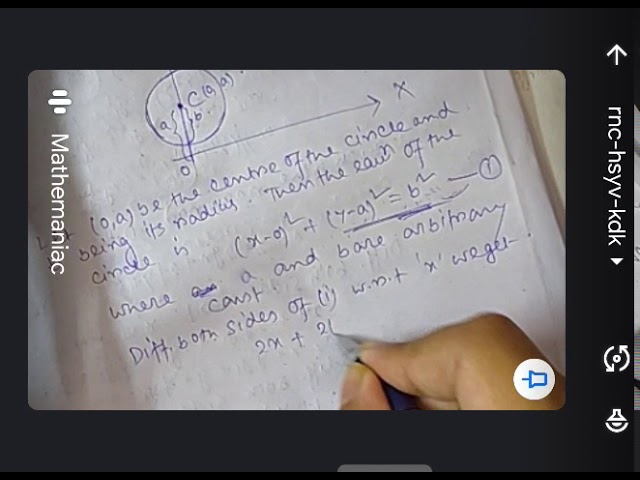 C(0,a)
a
b
O
X
Let (0,a) be the centre of the circle and
being its radius. Then the eqn of the
circle is (x-0)² + (y-a)² = b² — ①
where a and b are arbitrary
const.
Diff. both sides of (i) w.r.t 'x' we get.
2x + 2(
Mathemaniac
rnc-hsyv-kdk